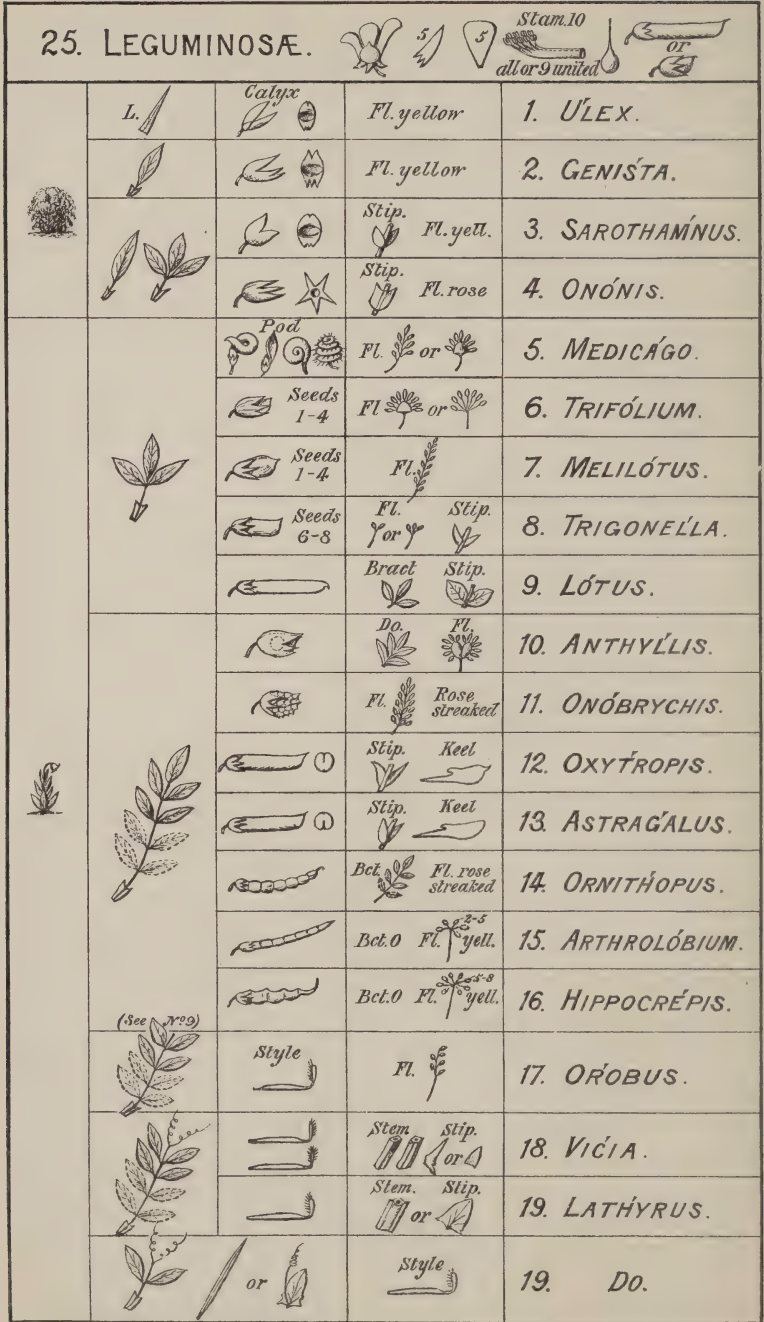 25. LEGUMINOSÆ. 5 5 Stam. 10 all or 9 united or
L. Calyx Fl. yellow 1. ÚLEX.
Fl. yellow 2. GENIŚTA.
Stip. Fl. yell. 3. SAROTHAḾNUS.
Stip. Fl. rose 4. ONÓNIS.
Pod Fl. or 5. MEDICÁGO.
Seeds 1-4 Fl or 6. TRIFÓLIUM.
Seeds 1-4 Fl. 7. MELILÓTUS.
Seeds 6-8 Fl. or Stip. 8. TRIGONEĹLA.
Bract Stip. 9. LÓTUS.
Do. Fl. 10. ANTHYĹLIS.
Fl. Rose streaked 11. ONÓBRYCHIS.
Stip. Keel 12. OXYT́ROPIS.
Stip. Keel 13. ASTRAǴALUS.
Bct. Fl. rose streaked 14. ORNITH́OPUS.
Bct. 0 Fl. 2-5 yell. 15. ARTHROLÓBIUM.
Bct. 0 Fl. 5-8 yell. 16. HIPPOCRÉPIS.
(See Nº 9)
Style Fl. 17. OŔOBUS.
Stem Stip. or 18. VIĆIA.
Stem. Stip. or 19. LATH́YRUS.
or Style 19. Do.